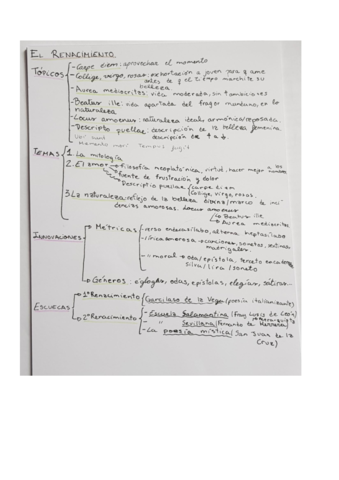 EL RENACIMIENTO
TÓPICOS
- Carpe diem: aprovechar el momento
- Collige, virgo, rosas: exhortación a joven para q ame
antes de q el tiempo marchite su
belleza
- Aurea mediocritas: vida moderada, sin ambiciones
- Beatus ille: vida apartada del fragor mundano, en la
naturaleza
- Locus amoenus: naturaleza ideal, armónica/reposada.
- Descriptio puellae: descripción de la belleza femenina,
descripción de
Memento mori Tempus fugit
TEMAS
1. La mitología
2. El amor
filosofía neoplatónica, virtud, hacer mejor a los hombres
fuente de frustración y dolor
Descriptio puellae
carpe diem
Collige, virgo, rosas
3. La naturaleza: reflejo de la belleza divina/marco de
amorosas. Locus amoenus
Beatus ille
Aurea mediocritas
INNOVACIONES
Métricas
verso endecasílabo, alterna heptasílabo
lírica amorosa → canciones, sonetos,
madrigales
moral → oda/epístola, terceto
silva/lira/soneto
Géneros: églogas, odas, epístolas, elegías, sátiras...
ESCUELAS
1º Renacimiento
Garcilaso de la Vega (poesía italianizante)
2º Renacimiento
- Escuela Salmantina (Fray Luis de León)
" Sevillana (Fernando de Herrera)
- La poesía mística (San Juan de la
Cruz)